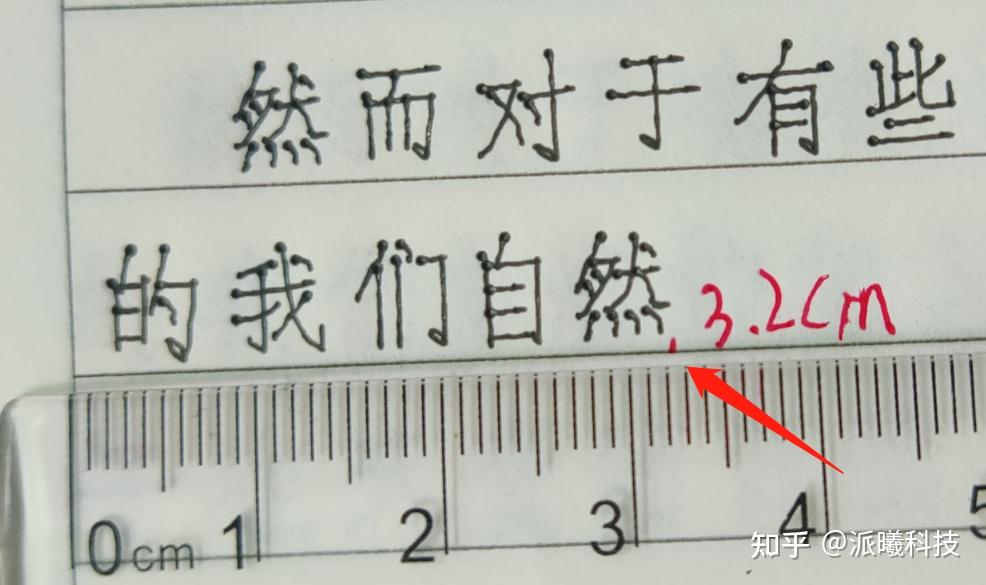 然而对于有些
的我们自然
3.2cm
0cm 1 2 3 4 5
知乎 @派曦科技